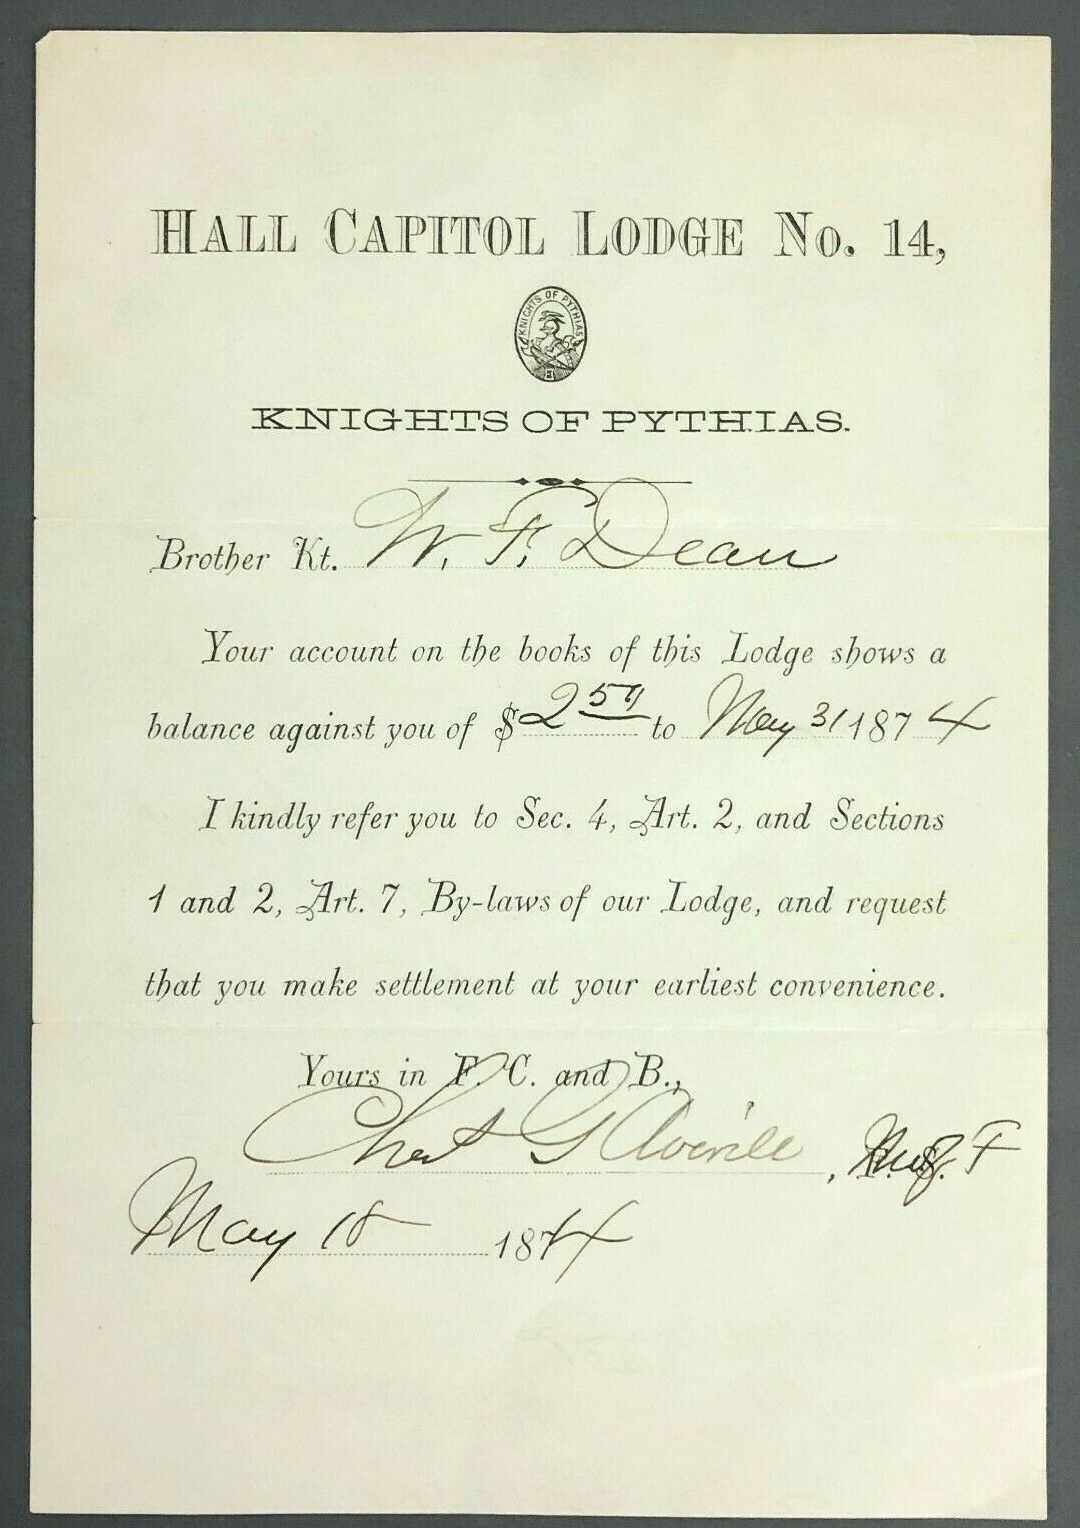 HALL CAPITOL LODGE No. 14,
KNIGHTS OF PYTHIAS
KNIGHTS OF PYTHIAS.
Brother Kt. W. F. Dean
Your account on the books of this Lodge shows a
balance against you of $2 50 to May 31 1874
I kindly refer you to Sec. 4, Art. 2, and Sections
1 and 2, Art. 7, By-laws of our Lodge, and request
that you make settlement at your earliest convenience.
Yours in F. C. and B.,
Chas G Averill, F
May 18 1874